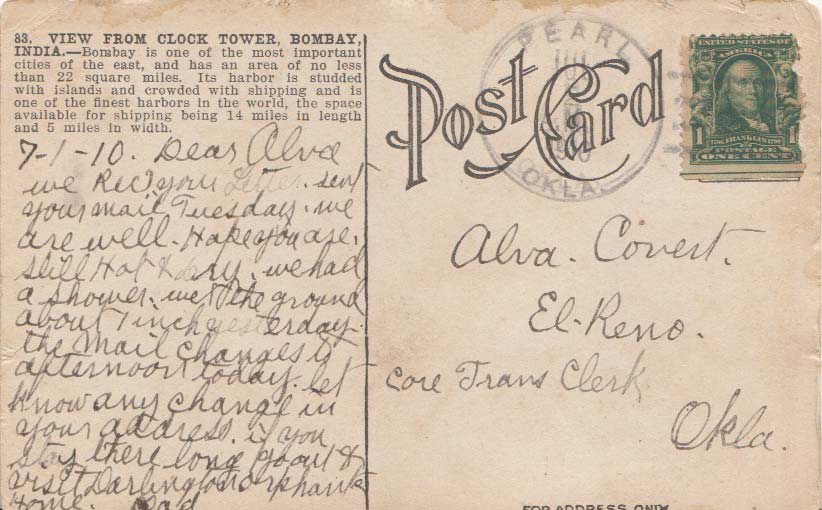 83. VIEW FROM CLOCK TOWER, BOMBAY,
INDIA.—Bombay is one of the most important
cities of the east, and has an area of no less
than 22 square miles. Its harbor is studded
with islands and crowded with shipping and is
one of the finest harbors in the world, the space
available for shipping being 14 miles in length
and 5 miles in width.
7-1-10. Dear Alva
we Recd your Letter. sent
your mail Tuesday. we
are well. Hope you are.
still Hot & dry. we had
a shower. wet the ground
about 1 inch yesterday.
the Mail changes to
afternoon today. let
know any change in
your address. if you
stay there long go out &
visit Darlington orphants
Home. Dad
Post Card
PEARL
OKLA.
UNITED STATES OF
AMERICA
1 1
FRANKLIN
POSTAGE
ONE CENT
Alva. Covert.
El-Reno.
core Trans Clerk
Okla.
FOR ADDRESS ONLY